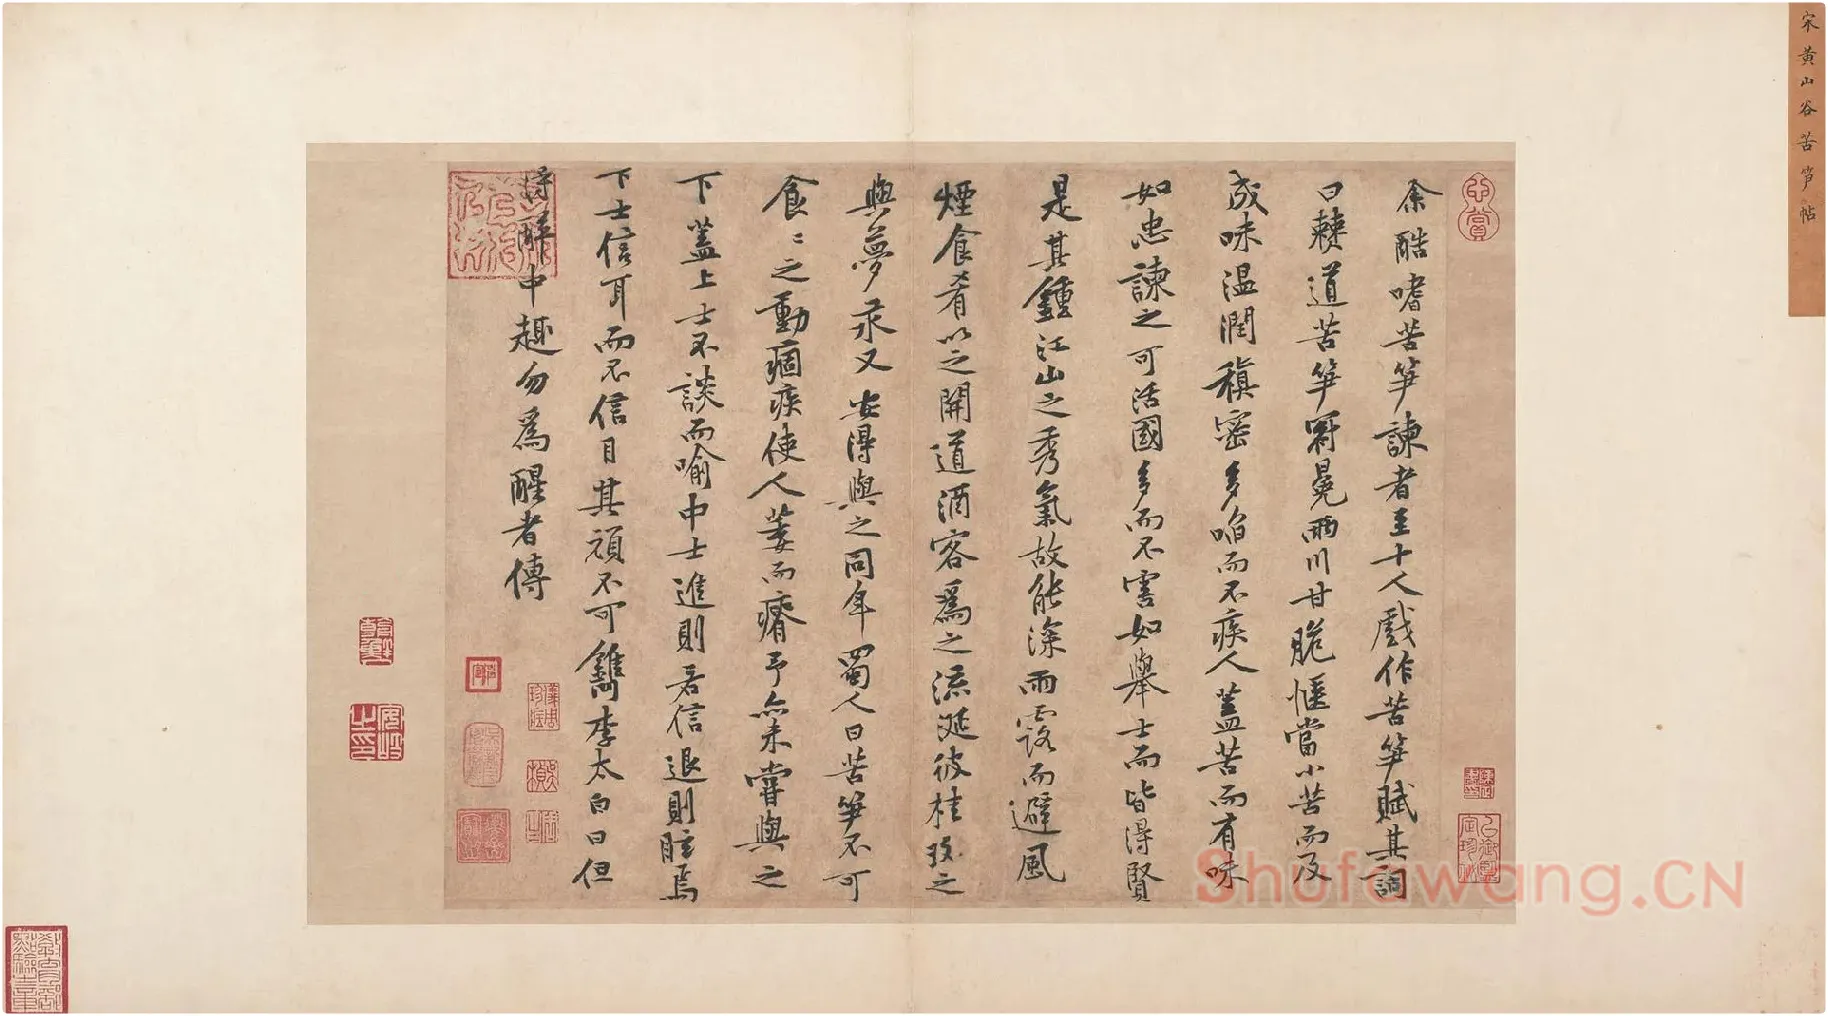 宋黄山谷苦笋帖
余酷嗜苦笋諫者至十人戲作苦笋賦其詞
曰僰道苦笋冠冕兩川甘脆愜當小苦而及
成味温潤稹密多啗而不疾人蓋苦而有味
如忠諫之可活國多而不害如舉士而皆得賢
是其鍾江山之秀氣故能深雨露而避風
煙食肴以之開道酒客爲之流涎彼桂玫之
與夢永又安得與之同年蜀人曰苦笋不可
食食之動痼疾使人萎而瘠予亦未嘗與之
下蓋上士不談而喻中士進則若信退則眩焉
下士信耳而不信目其頑不可鐫李太白曰但
得醉中趣勿爲醒者傳
Shufawang.CN